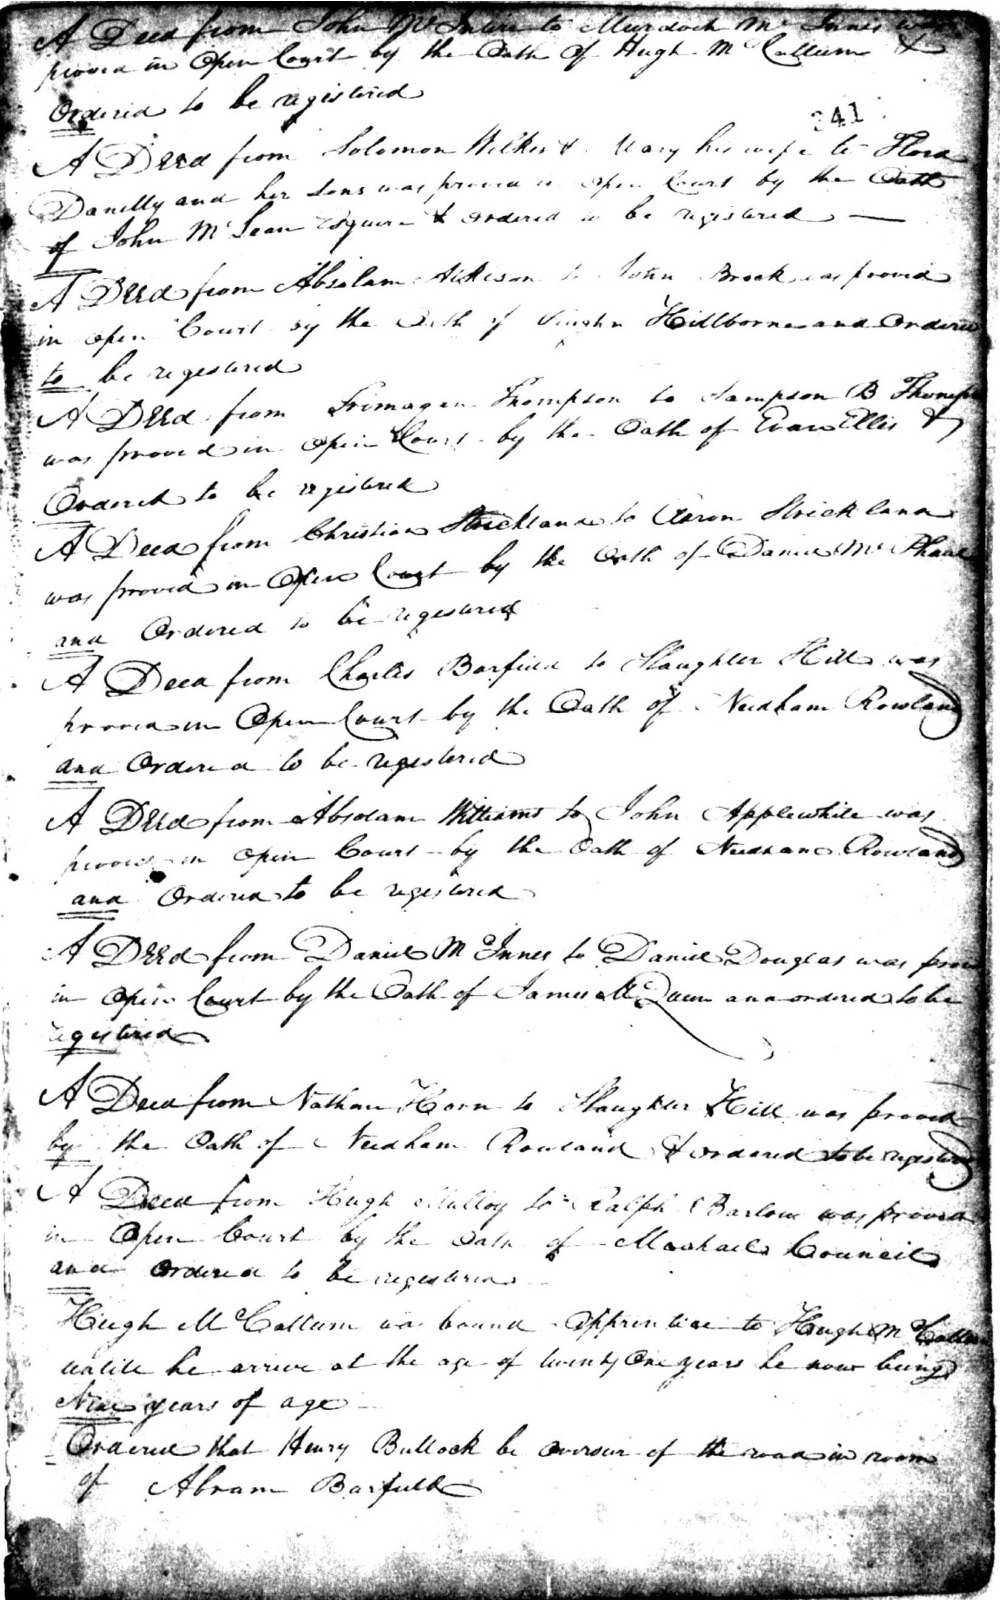 A Deed from John Mc to Murdoch Mc Innes was
proved in Open Court by the Oath of Hugh Mc Callum &
Ordered to be registered
341
A Deed from Solomon Wilkes & Mary his wife to Flora
Danelly and her sons was proved in open Court by the Oath
of John Mc Lean Esquire & ordered to be registered
A Deed from Absalam to John Brook was proved
in open Court by the Oath of Hillborne and Ordered
to be registered
A Deed from Thompson to Sampson B Thompson
was proved in open Court by the Oath of Evan Ellis &
Ordered to be registered
A Deed from Christian Strickland to Aaron Strickland
was proved in Open Court by the Oath of Daniel Mc Phaul
and Ordered to be registered
A Deed from Charles Barfield to Slaughter Hill was
proved in Open Court by the Oath of Needham Rowland
and Ordered to be registered
A Deed from Absolam Williams to John Applewhite was
proved in Open Court by the Oath of Needham Rowland
and Ordered to be registered
A Deed from Daniel Mc Innes to Daniel Douglas was proved
in Open Court by the Oath of James Mc Queen and ordered to be
registered
A Deed from Nathan Horn to Slaughter Hill was proved
by the Oath of Needham Rowland & ordered to be registered
A Deed from Hugh Mulloy to Ralph Barlow was proved
in Open Court by the Oath of Machael Council
and Ordered to be registered
Hugh Mc Callum was bound Apprentice to Hugh Mc Callum
untill he arrive at the age of twenty One years he now being
Nine years of age
Ordered that Henry Bullock be overseer of the road in room
of Abram Barfield